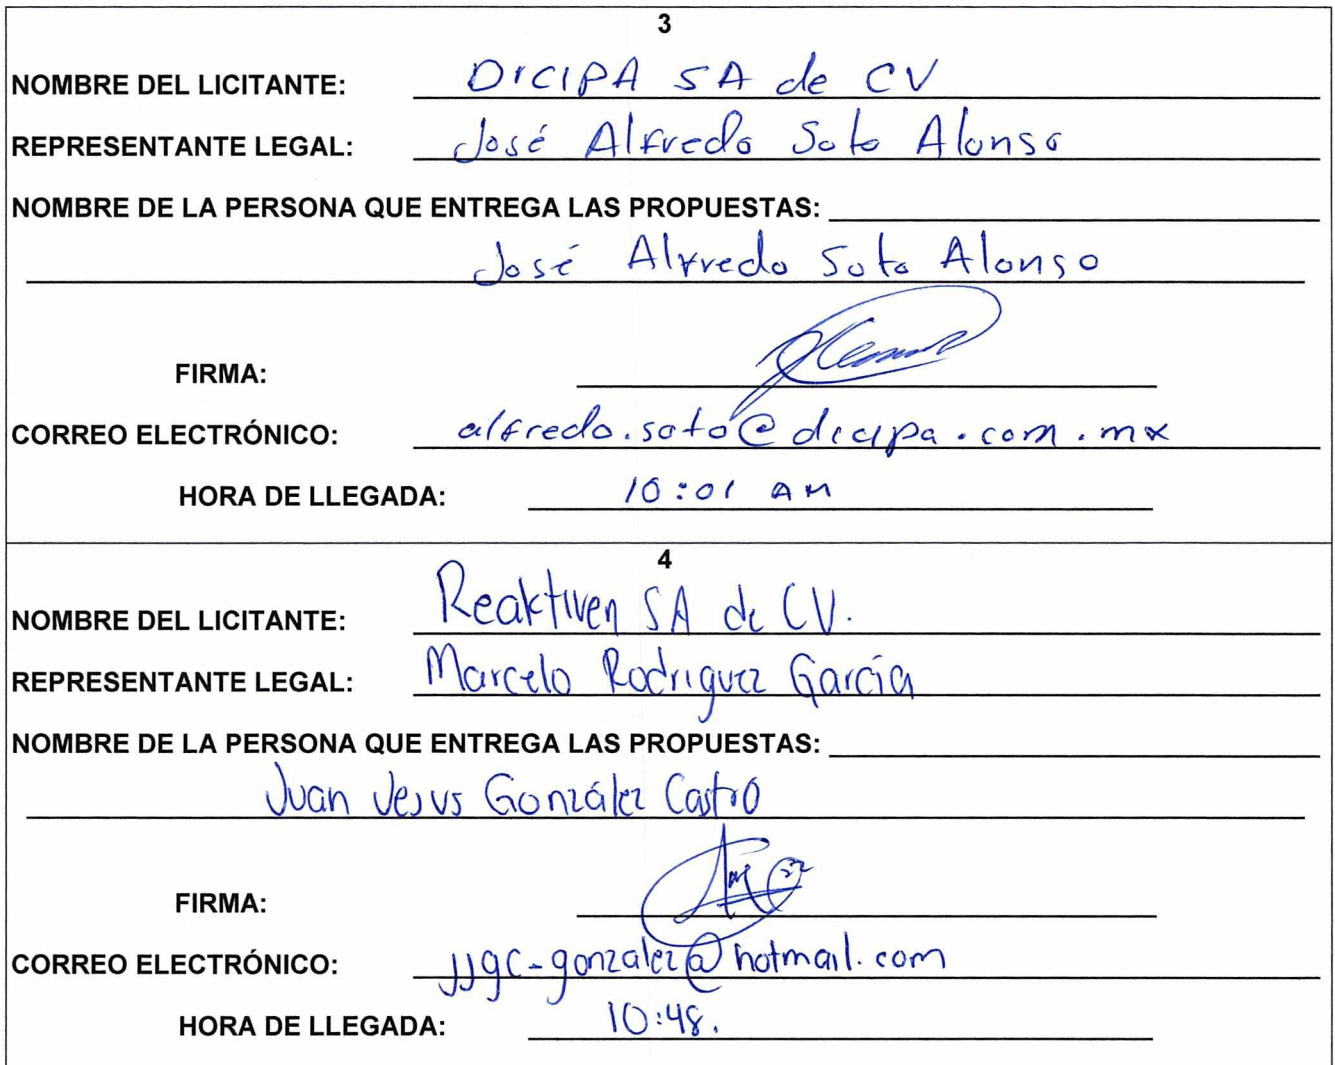 3
NOMBRE DEL LICITANTE: DICIPA SA de CV
REPRESENTANTE LEGAL: José Alfredo Soto Alonso
NOMBRE DE LA PERSONA QUE ENTREGA LAS PROPUESTAS:
José Alfredo Soto Alonso
FIRMA:
CORREO ELECTRÓNICO: alfredo.soto@dicipa.com.mx
HORA DE LLEGADA: 10:01 AM
4
NOMBRE DEL LICITANTE: Reaktiven SA de CV.
REPRESENTANTE LEGAL: Marcelo Rodriguez García
NOMBRE DE LA PERSONA QUE ENTREGA LAS PROPUESTAS:
Juan Jesus González Castro
FIRMA:
CORREO ELECTRÓNICO: jjgc-gonzalez@hotmail.com
HORA DE LLEGADA: 10:48.